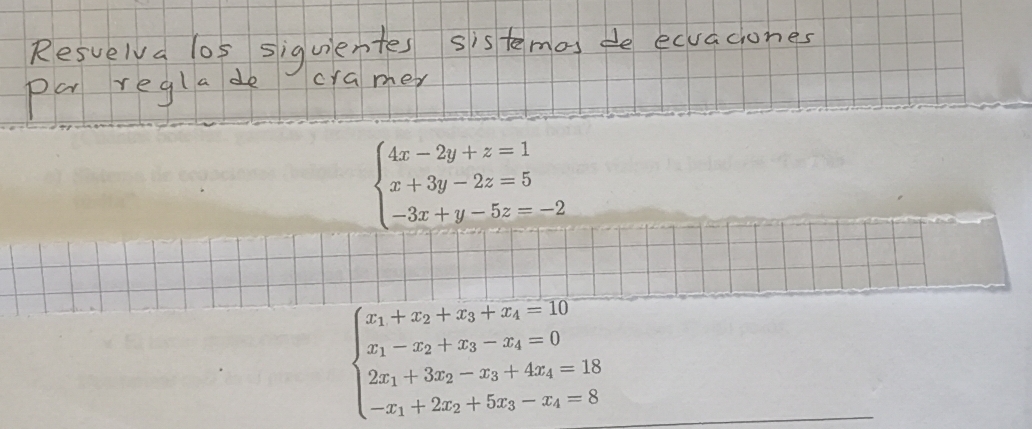 Resuelva los siguientes sistemas de ecuaciones
por regla de cramer
4x − 2y + z = 1
x + 3y − 2z = 5
−3x + y − 5z = −2
x₁ + x₂ + x₃ + x₄ = 10
x₁ − x₂ + x₃ − x₄ = 0
2x₁ + 3x₂ − x₃ + 4x₄ = 18
−x₁ + 2x₂ + 5x₃ − x₄ = 8